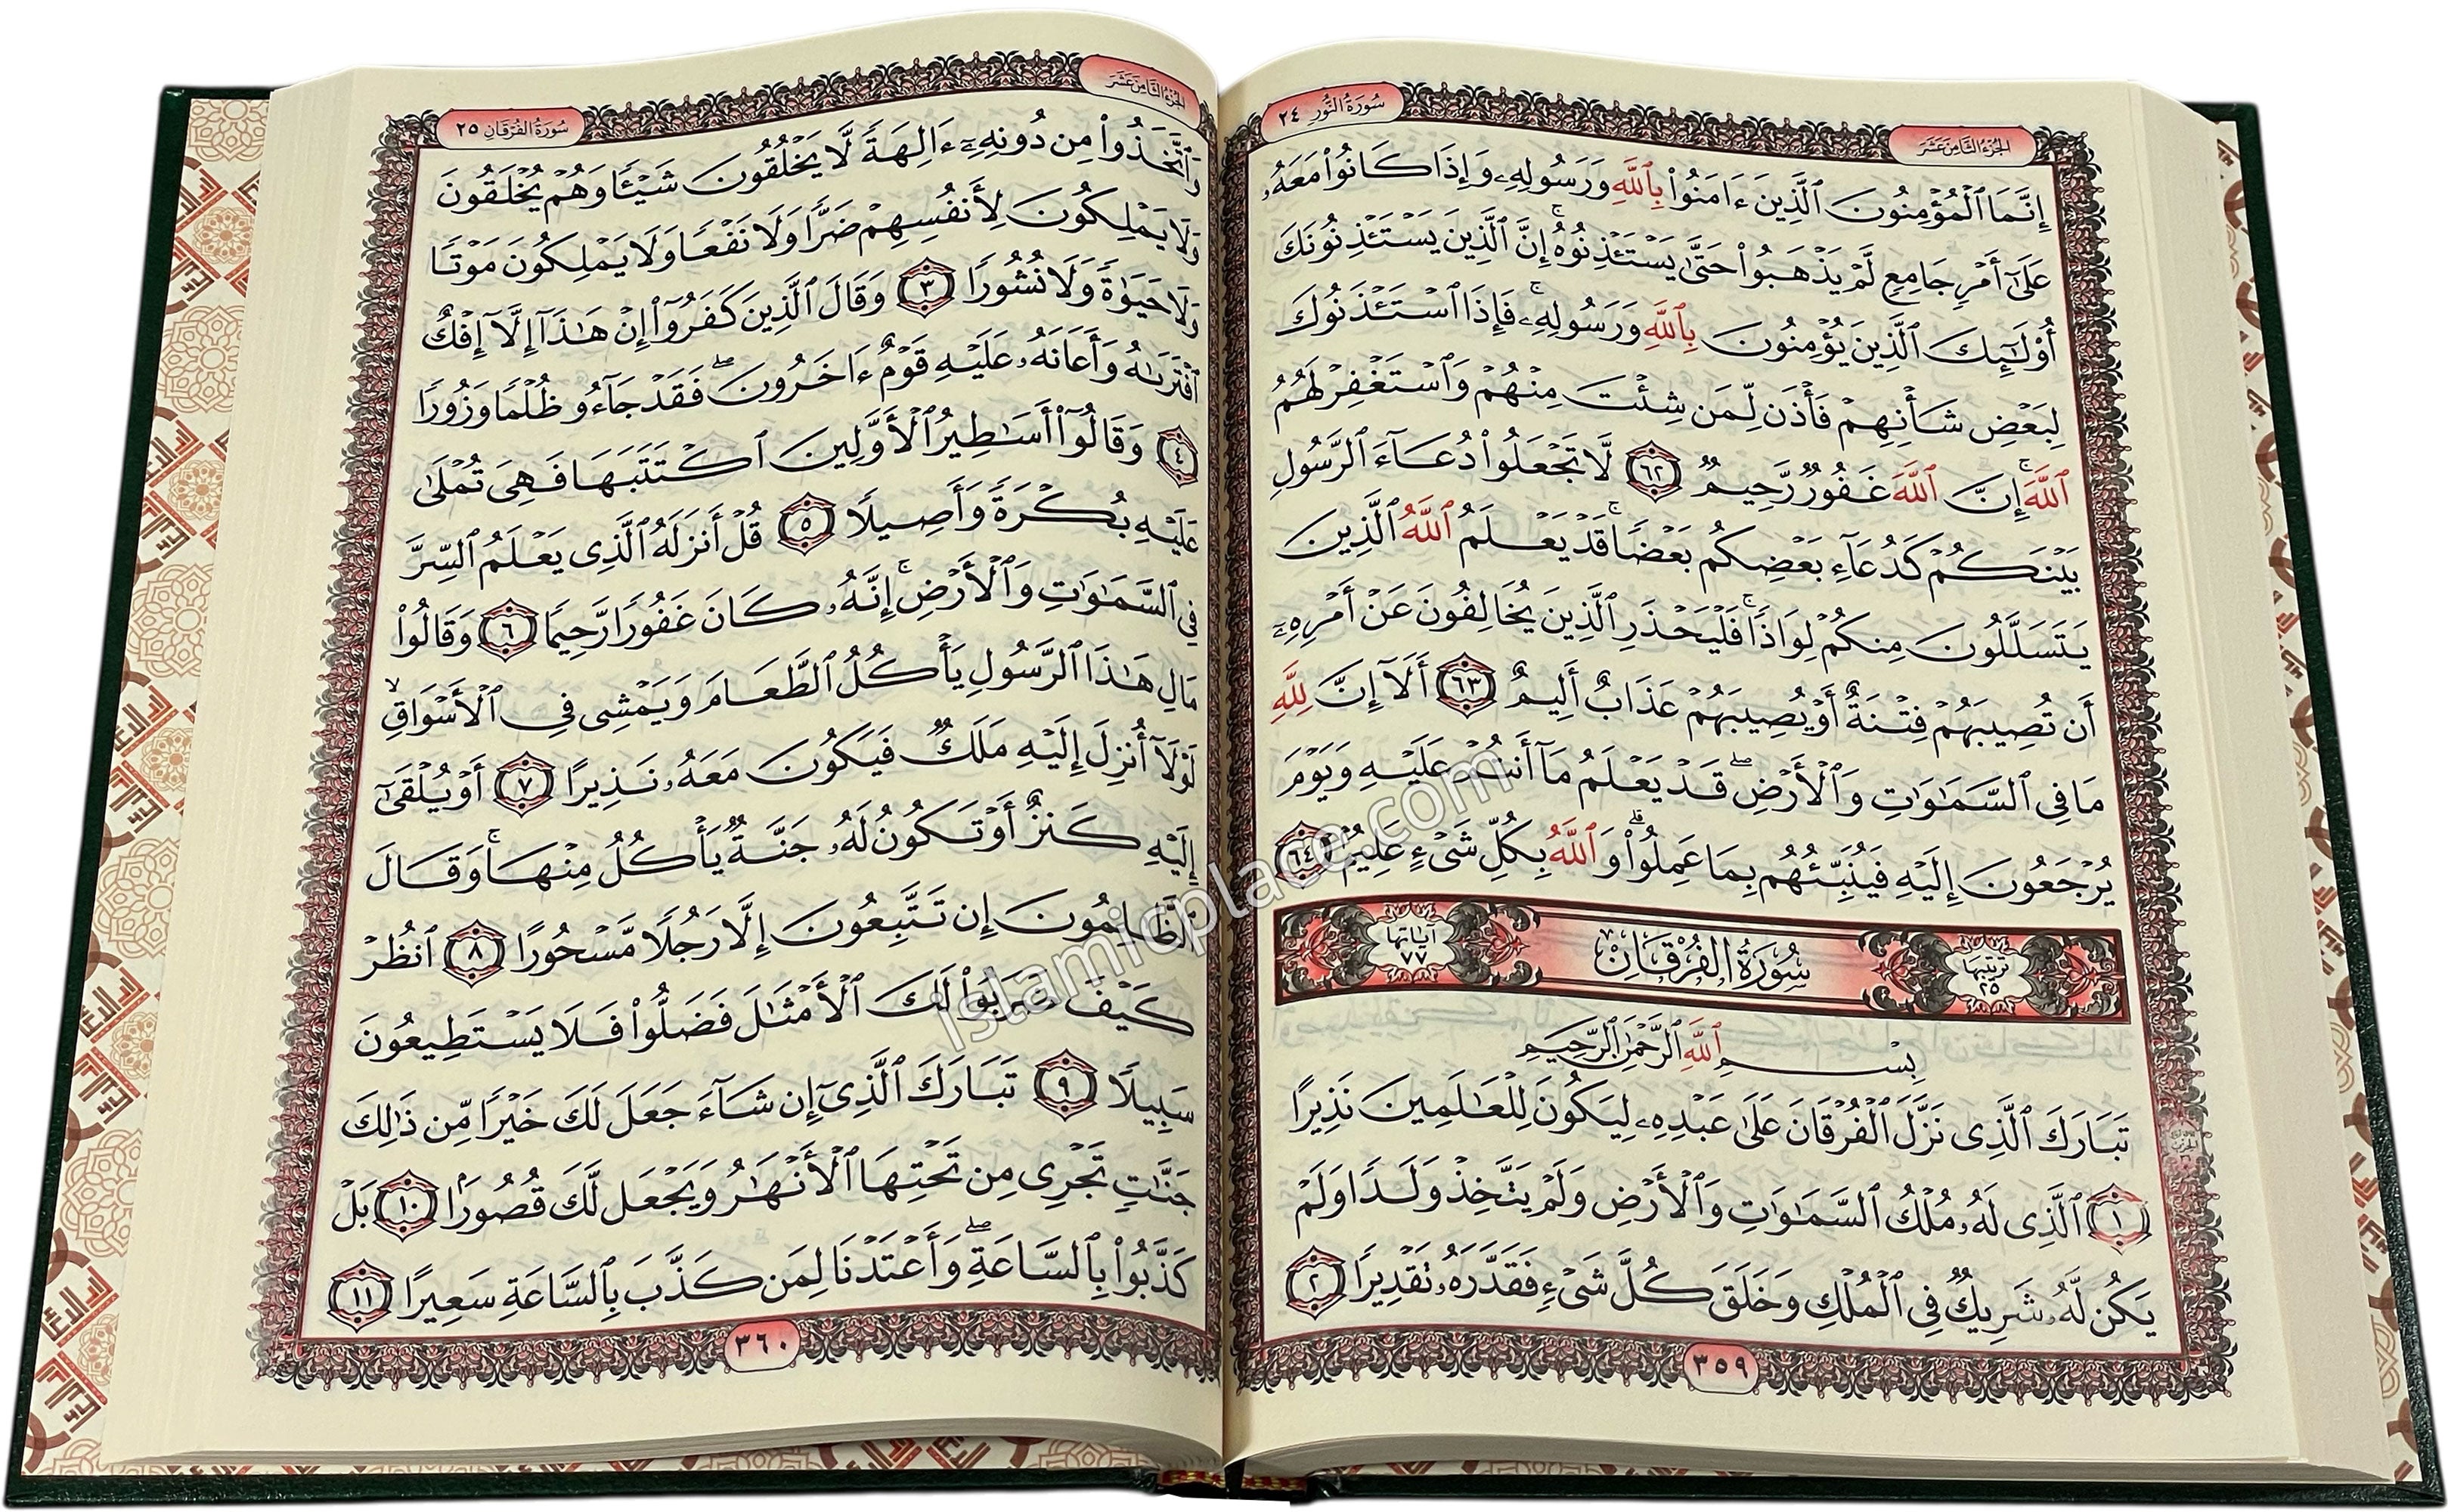 الجزء الثامن عشر
سورة النور ٢٤
إِنَّمَا ٱلْمُؤْمِنُونَ ٱلَّذِينَ ءَامَنُوا۟ بِٱللَّهِ وَرَسُولِهِۦ وَإِذَا كَانُوا۟ مَعَهُۥ
عَلَىٰٓ أَمْرٍ جَامِعٍ لَّمْ يَذْهَبُوا۟ حَتَّىٰ يَسْتَـْٔذِنُوهُ ۚ إِنَّ ٱلَّذِينَ يَسْتَـْٔذِنُونَكَ
أُو۟لَـٰٓئِكَ ٱلَّذِينَ يُؤْمِنُونَ بِٱللَّهِ وَرَسُولِهِۦ ۚ فَإِذَا ٱسْتَـْٔذَنُوكَ
لِبَعْضِ شَأْنِهِمْ فَأْذَن لِّمَن شِئْتَ مِنْهُمْ وَٱسْتَغْفِرْ لَهُمُ
ٱللَّهَ ۚ إِنَّ ٱللَّهَ غَفُورٌ رَّحِيمٌ ٦٢ لَّا تَجْعَلُوا۟ دُعَآءَ ٱلرَّسُولِ
بَيْنَكُمْ كَدُعَآءِ بَعْضِكُم بَعْضًا ۚ قَدْ يَعْلَمُ ٱللَّهُ ٱلَّذِينَ
يَتَسَلَّلُونَ مِنكُمْ لِوَاذًا ۚ فَلْيَحْذَرِ ٱلَّذِينَ يُخَالِفُونَ عَنْ أَمْرِهِۦٓ
أَن تُصِيبَهُمْ فِتْنَةٌ أَوْ يُصِيبَهُمْ عَذَابٌ أَلِيمٌ ٦٣ أَلَآ إِنَّ لِلَّهِ
مَا فِى ٱلسَّمَـٰوَٰتِ وَٱلْأَرْضِ ۖ قَدْ يَعْلَمُ مَآ أَنتُمْ عَلَيْهِ وَيَوْمَ
يُرْجَعُونَ إِلَيْهِ فَيُنَبِّئُهُم بِمَا عَمِلُوا۟ ۗ وَٱللَّهُ بِكُلِّ شَىْءٍ عَلِيمٌۢ ٦٤
ترتيبها ٢٥ سُورَةُ الفُرْقَانِ آياتها ٧٧
بِسْمِ ٱللَّهِ ٱلرَّحْمَـٰنِ ٱلرَّحِيمِ
تَبَارَكَ ٱلَّذِى نَزَّلَ ٱلْفُرْقَانَ عَلَىٰ عَبْدِهِۦ لِيَكُونَ لِلْعَـٰلَمِينَ نَذِيرًا
١ ٱلَّذِى لَهُۥ مُلْكُ ٱلسَّمَـٰوَٰتِ وَٱلْأَرْضِ وَلَمْ يَتَّخِذْ وَلَدًا وَلَمْ
يَكُن لَّهُۥ شَرِيكٌ فِى ٱلْمُلْكِ وَخَلَقَ كُلَّ شَىْءٍ فَقَدَّرَهُۥ تَقْدِيرًا ٢
٣٥٩
الجزء الثامن عشر
سورة الفرقان ٢٥
وَٱتَّخَذُوا۟ مِن دُونِهِۦٓ ءَالِهَةً لَّا يَخْلُقُونَ شَيْـًٔا وَهُمْ يُخْلَقُونَ
وَلَا يَمْلِكُونَ لِأَنفُسِهِمْ ضَرًّا وَلَا نَفْعًا وَلَا يَمْلِكُونَ مَوْتًا
وَلَا حَيَوٰةً وَلَا نُشُورًا ٣ وَقَالَ ٱلَّذِينَ كَفَرُوٓا۟ إِنْ هَـٰذَآ إِلَّآ إِفْكٌ
ٱفْتَرَىٰهُ وَأَعَانَهُۥ عَلَيْهِ قَوْمٌ ءَاخَرُونَ ۖ فَقَدْ جَآءُو ظُلْمًا وَزُورًا
٤ وَقَالُوٓا۟ أَسَـٰطِيرُ ٱلْأَوَّلِينَ ٱكْتَتَبَهَا فَهِىَ تُمْلَىٰ
عَلَيْهِ بُكْرَةً وَأَصِيلًا ٥ قُلْ أَنزَلَهُ ٱلَّذِى يَعْلَمُ ٱلسِّرَّ
فِى ٱلسَّمَـٰوَٰتِ وَٱلْأَرْضِ ۚ إِنَّهُۥ كَانَ غَفُورًا رَّحِيمًا ٦ وَقَالُوا۟
مَالِ هَـٰذَا ٱلرَّسُولِ يَأْكُلُ ٱلطَّعَامَ وَيَمْشِى فِى ٱلْأَسْوَاقِ ۙ
لَوْلَآ أُنزِلَ إِلَيْهِ مَلَكٌ فَيَكُونَ مَعَهُۥ نَذِيرًا ٧ أَوْ يُلْقَىٰٓ
إِلَيْهِ كَنزٌ أَوْ تَكُونُ لَهُۥ جَنَّةٌ يَأْكُلُ مِنْهَا ۚ وَقَالَ
ٱلظَّـٰلِمُونَ إِن تَتَّبِعُونَ إِلَّا رَجُلًا مَّسْحُورًا ٨ ٱنظُرْ
كَيْفَ ضَرَبُوا۟ لَكَ ٱلْأَمْثَـٰلَ فَضَلُّوا۟ فَلَا يَسْتَطِيعُونَ
سَبِيلًا ٩ تَبَارَكَ ٱلَّذِىٓ إِن شَآءَ جَعَلَ لَكَ خَيْرًا مِّن ذَٰلِكَ
جَنَّـٰتٍ تَجْرِى مِن تَحْتِهَا ٱلْأَنْهَـٰرُ وَيَجْعَل لَّكَ قُصُورًۢا ١٠ بَلْ
كَذَّبُوا۟ بِٱلسَّاعَةِ ۖ وَأَعْتَدْنَا لِمَن كَذَّبَ بِٱلسَّاعَةِ سَعِيرًا ١١
٣٦٠
islamicplace.com